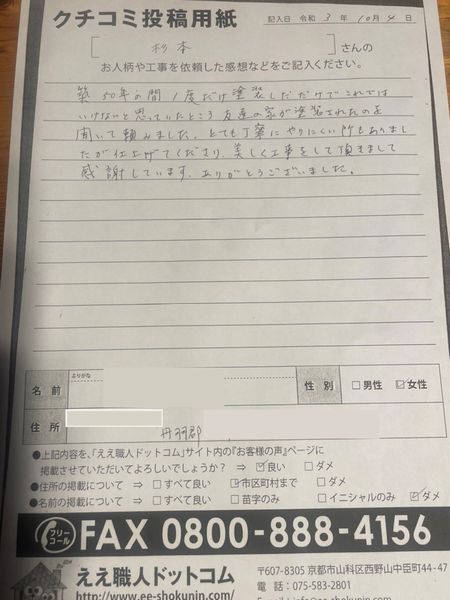 クチコミ投稿用紙
記入日 令和 3 年 10月 4 日
[ 杉本 ] さんの
お人柄や工事を依頼した感想などをご記入ください。
築50年の間1度だけ塗装しただけでこれでは
いけないと思っていたところ友達の家が塗装されたのを
聞いて頼みました。とても丁寧にやりにくい所もありまし
たが仕上げてくださり、美しく工事をして頂きまして
感謝しています。ありがとうございました。
ふりがな
名 前
性 別 □男性 ☑女性
住 所
丹羽郡
●上記内容を、「ええ職人ドットコム」サイト内の『お客様の声』ページに
掲載させていただいてよろしいでしょうか？ ⇒ ☑良い □ダメ
●住所の掲載について ⇒ □すべて良い ☑市区町村まで □ダメ
●名前の掲載について ⇒ □すべて良い □苗字のみ □イニシャルのみ ☑ダメ
フリーコール FAX 0800-888-4156
ええ職人ドットコム
http://www.ee-shokunin.com/
〒607-8305 京都市山科区西野山中臣町44-47
電話：075-583-2801